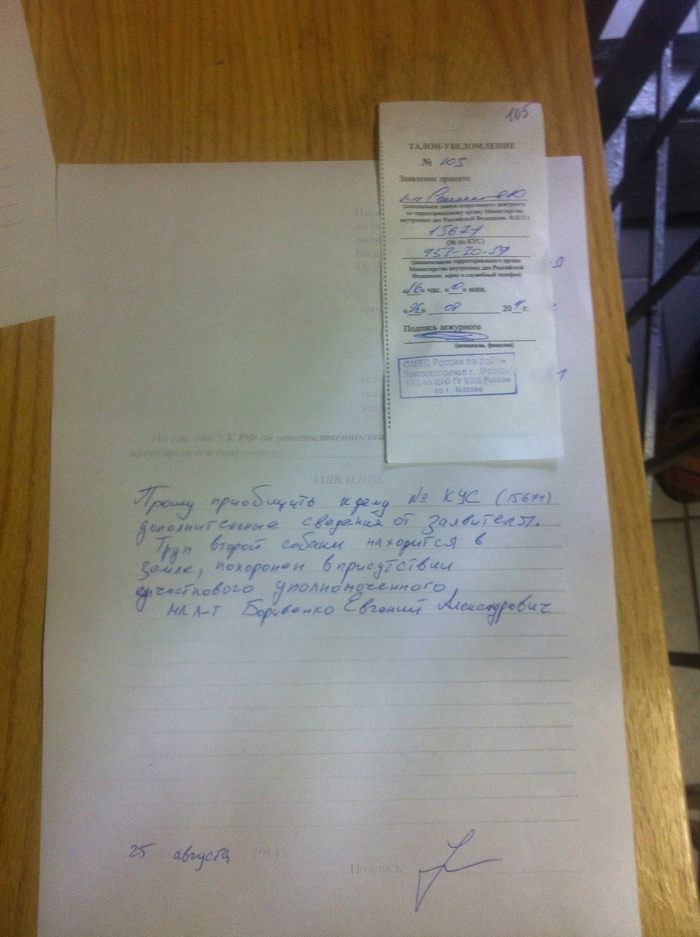 105
ТАЛОН-УВЕДОМЛЕНИЕ
№ 105
Заявление принято
(специальное звание оперативного дежурного
по территориальному органу Министерства
внутренних дел Российской Федерации, Ф.И.О.)
15671
(№ по КУС)
951-20-59
(наименование территориального органа
Министерства внутренних дел Российской
Федерации, адрес и служебный телефон)
«16» час. «10» мин.
201 г.
Подпись дежурного
(инициалы, фамилия)
ОМВД России по району
Замоскворечье г. Москвы
УВД по ЦАО ГУ МВД России
по г. Москве
По ст. 306 УК РФ об ответственности
предупрежден (на)
ЗАЯВЛЕНИЕ
Прошу приобщить к делу № КУС (15671)
дополнительные сведения от заявителя.
Труп второй собаки находится в
земле, похоронен в присутствии
участкового уполномоченного
мл. л-т Евгений Александрович
25 августа 2014
Подпись